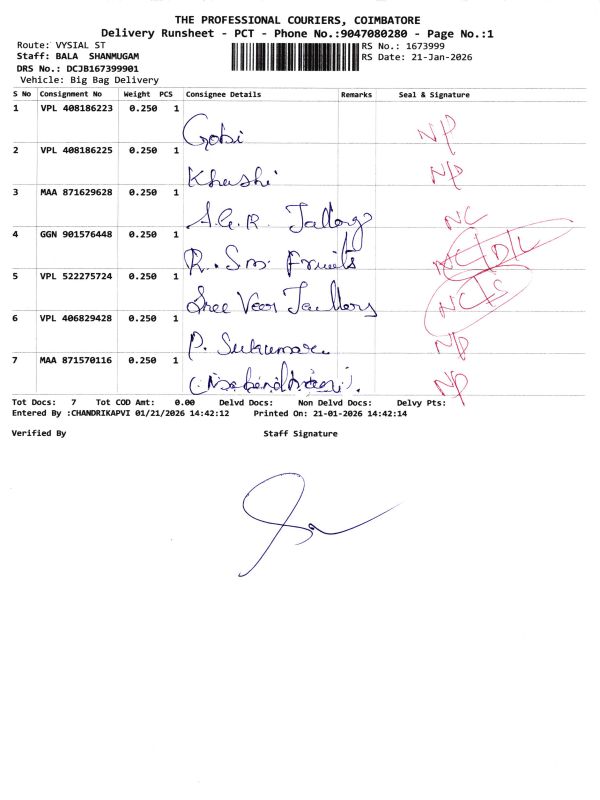 THE PROFESSIONAL COURIERS, COIMBATORE
Delivery Runsheet - PCT - Phone No.:9047080280 - Page No.:1
Route: VYSIAL ST RS No.: 1673999
Staff: BALA SHANMUGAM RS Date: 21-Jan-2026
DRS No.: DCJB167399901
Vehicle: Big Bag Delivery
S No Consignment No Weight PCS Consignee Details Remarks Seal & Signature
1 VPL 408186223 0.250 1 Gobi NP
2 VPL 408186225 0.250 1 Khushi NP
3 MAA 871629628 0.250 1 A.G.R. NC
4 GGN 901576448 0.250 1 R. Sm. Fruits NC D/L
5 VPL 522275724 0.250 1 Shree Veer Taillors NC
6 VPL 406829428 0.250 1 P. Sukumar NP
7 MAA 871570116 0.250 1 NP
Tot Docs: 7 Tot COD Amt: 0.00 Delvd Docs: Non Delvd Docs: Delvy Pts:
Entered By :CHANDRIKAPVI 01/21/2026 14:42:12 Printed On: 21-01-2026 14:42:14
Verified By Staff Signature